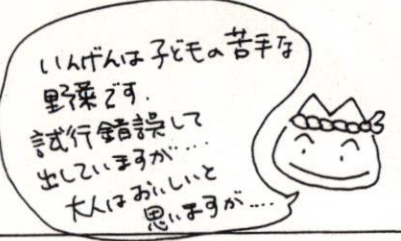 いんげんは子どもの苦手な
野菜です.
試行錯誤して
出していますが....
大人はおいしいと
思いますが....